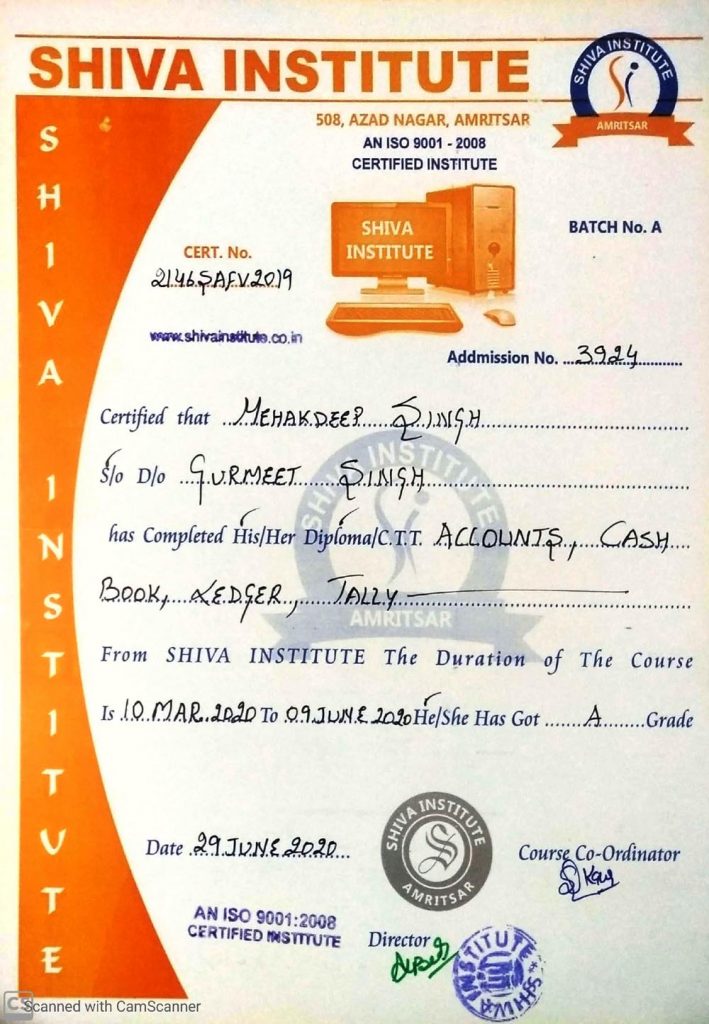 SHIVA INSTITUTE
SHIVA INSTITUTE
AMRITSAR
508, AZAD NAGAR, AMRITSAR
AN ISO 9001 - 2008
CERTIFIED INSTITUTE
SHIVA INSTITUTE
SHIVA
INSTITUTE
BATCH No. A
CERT. No.
2146SAFV2019
www.shivainstitute.co.in
Addmission No. ...3924..............
Certified that ...MEHAKDEEP SINGH...
S/o D/o ...GURMEET SINGH...
has Completed His/Her Diploma/C.T.T. ACCOUNTS, CASH
BOOK, LEDGER, TALLY
SHIVA INSTITUTE
AMRITSAR
From SHIVA INSTITUTE The Duration of The Course
Is 10 MAR 2020 To 09 JUNE 2020 He/She Has Got ........A........Grade
Date 29 JUNE 2020
SHIVA INSTITUTE
S
AMRITSAR
Course Co-Ordinator
AN ISO 9001:2008
CERTIFIED INSTITUTE
Director
SHIVA INSTITUTE
CS Scanned with CamScanner